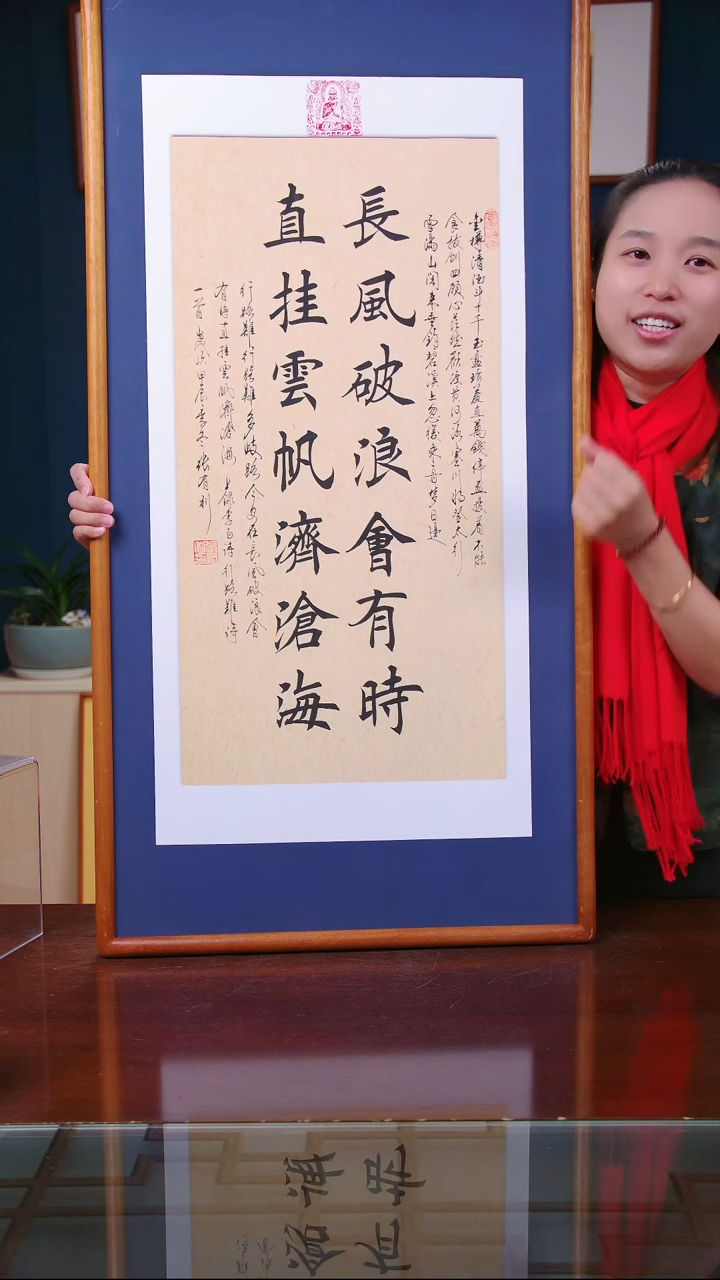 金樽清酒斗十千玉盤珍羞直萬錢停盃投箸不能
食拔劍四顧心茫然欲渡黃河冰塞川將登太行
雪滿山閑來垂釣碧溪上忽復乘舟夢日邊
長風破浪會有時
直挂雲帆濟滄海
行路難行路難多歧路今安在長風破浪會
有時直挂雲帆濟滄海 上錄李白詩行路難詩
一首歲次甲辰季冬張有利